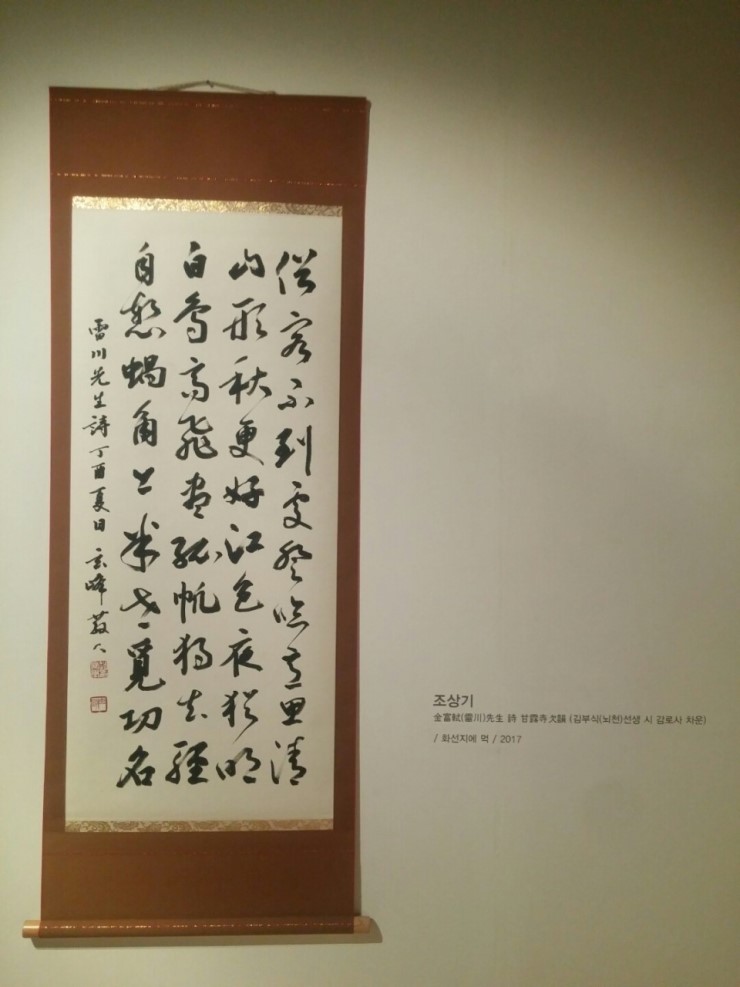 俗客不到處登臨意思清
山形秋更好江色夜猶明
白鳥高飛盡孤帆獨去輕
自慙蝸角上半世覓功名
雷川先生詩丁酉夏日
조상기
金富軾(雷川)先生 詩 甘露寺次韻 (김부식(뇌천)선생 시 감로사 차운)
/ 화선지에 먹 / 2017